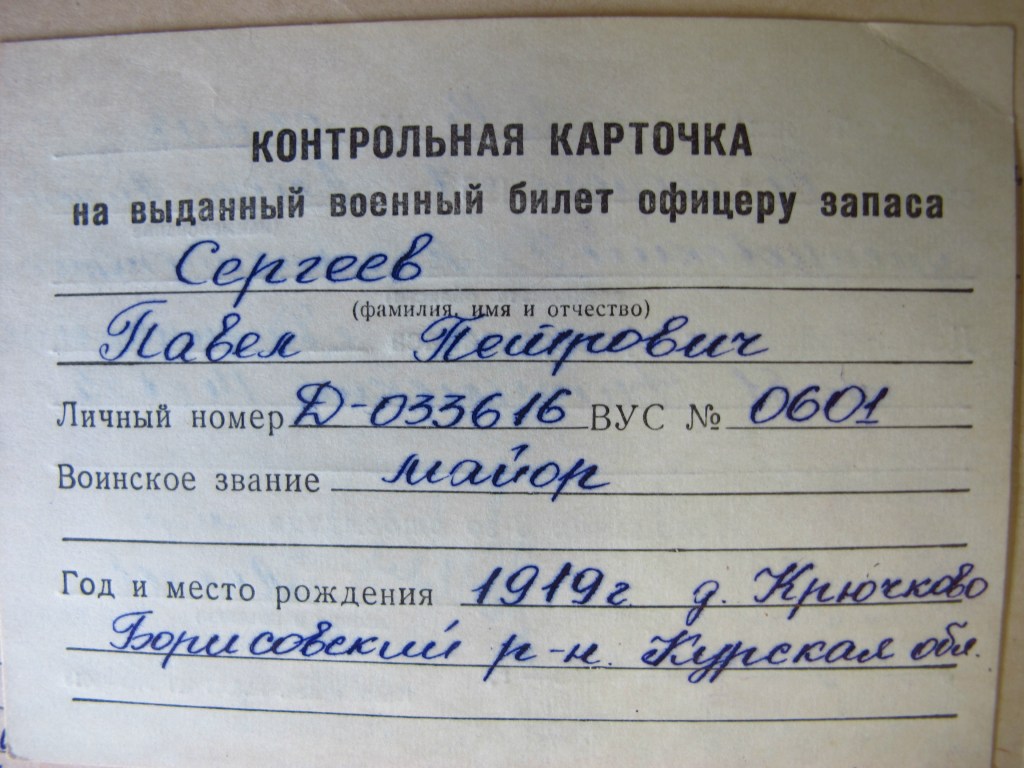 КОНТРОЛЬНАЯ КАРТОЧКА
на выданный военный билет офицеру запаса
Сергеев
(фамилия, имя и отчество)
Павел Петрович
Личный номер Д-033616 ВУС № 0601
Воинское звание майор
Год и место рождения 1919г. д. Крючково
Борисовский р-н. Курская обл.